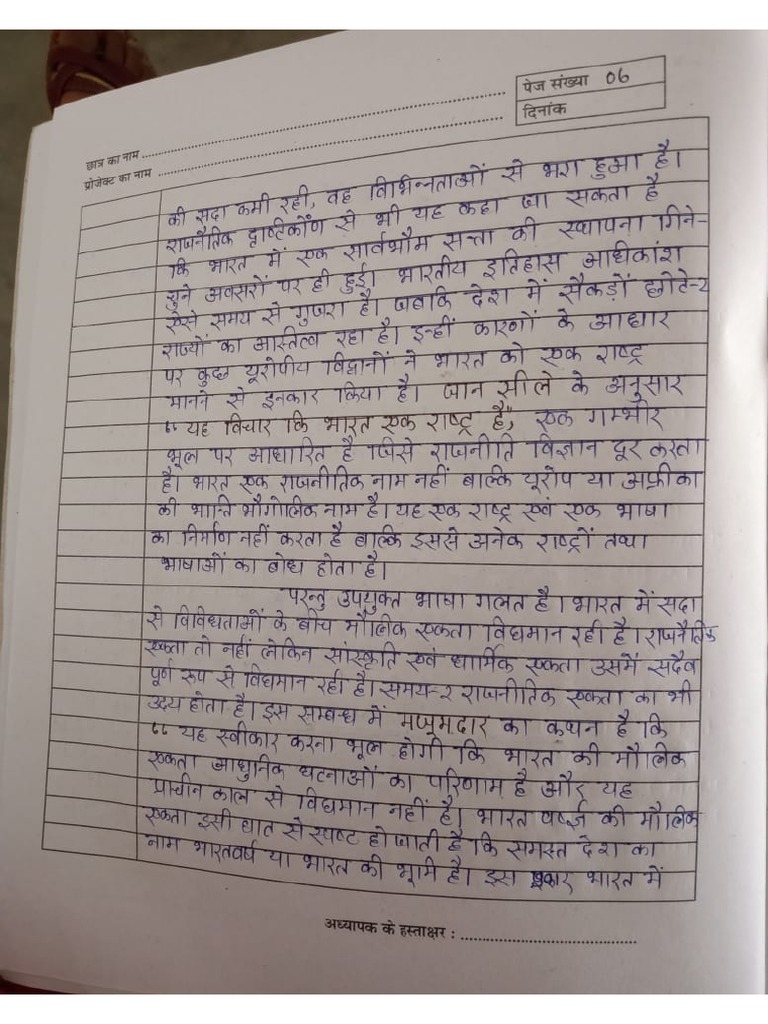 पेज संख्या 06
दिनांक
छात्र का नाम
प्रोजेक्ट का नाम
की सदा कमी रही, वह विभिन्नताओं से भरा हुआ है।
राजनैतिक दृष्टिकोण से भी यह कहा जा सकता है
कि भारत में एक सार्वभौम सत्ता की स्थापना गिने-
चुने अवसरों पर ही हुई। भारतीय इतिहास अधिकांश
ऐसे समय से गुजरा है। जबकि देश में सैकड़ों छोटे-२
राज्यों का अस्तित्व रहा है। इन्हीं कारणों के आधार
पर कुछ यूरोपीय विद्वानों ने भारत को एक राष्ट्र
मानने से इनकार किया है। जान सीले के अनुसार
"यह विचार कि भारत एक राष्ट्र है", एक गम्भीर
भूल पर आधारित है जिसे राजनीति विज्ञान दूर करता
है। भारत एक राजनीतिक नाम नहीं बल्कि यूरोप या अफ्रीका
की भान्ति भौगोलिक नाम है। यह एक राष्ट्र एवं एक भाषा
का निर्माण नहीं करता है बल्कि इससे अनेक राष्ट्रों तथा
भाषाओं का बोध होता है।
परन्तु उपयुक्त भाषा गलत है। भारत में सदा
से विविधताओं के बीच मौलिक एकता विद्यमान रही है। राजनैतिक
एकता तो नहीं लेकिन सांस्कृति एवं धार्मिक एकता उसमें सदैव
पूर्ण रूप से विद्यमान रही है। समय-२ राजनीतिक एकता का भी
उदय होता है। इस सम्बन्ध में मजूमदार का कथन है कि
"यह स्वीकार करना भूल होगी कि भारत की मौलिक
एकता आधुनिक घटनाओं का परिणाम है और यह
प्राचीन काल से विद्यमान नहीं है। भारत वर्ष की मौलिक
एकता इसी बात से स्पष्ट हो जाती है कि समस्त देश का
नाम भारतवर्ष या भारत की भूमि है। इस प्रकार भारत में
अध्यापक के हस्ताक्षर :